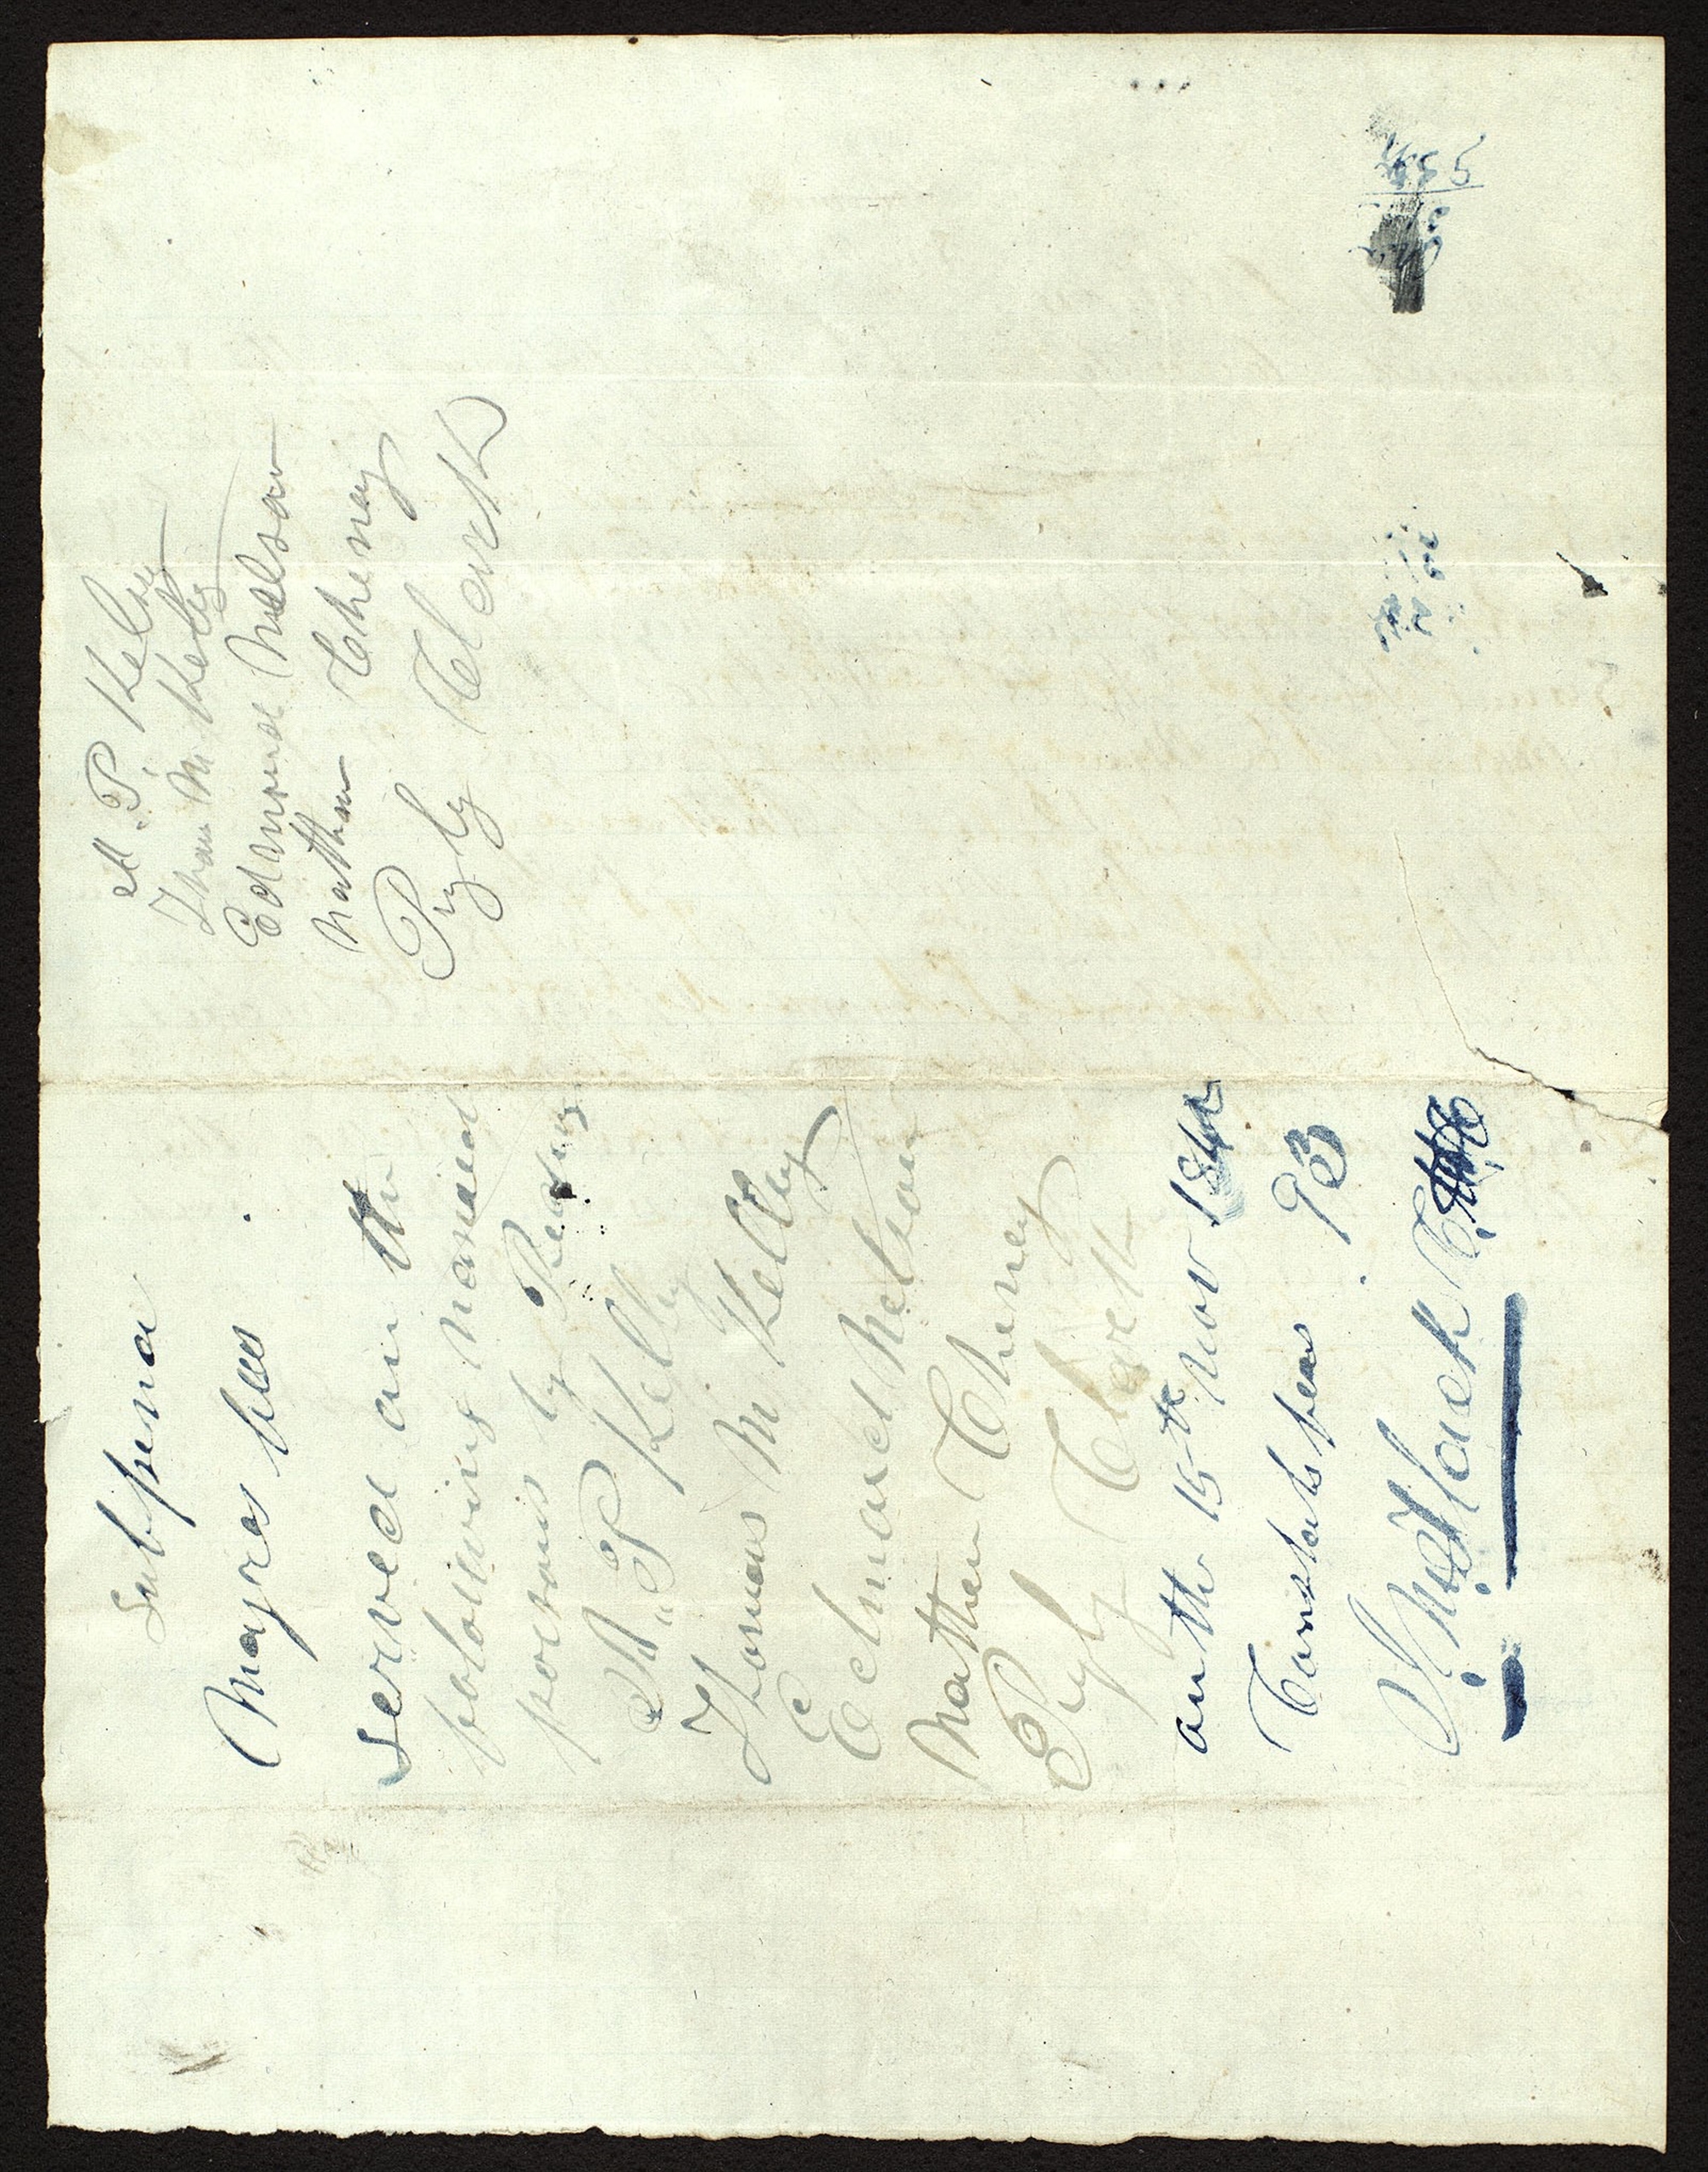 Subpena
Mayres fees
Served on the
following named
persons by Reding
A. P. Kelly
Thomas M Kelley
Edmond Nelson
Nathan Cheney
Pyly Clark
on the 15th Nov
Constabs fees . 93
A. P. Kely
Thom M Kely
Edmond Nelson
Nathan Cheney
Pyly Clark